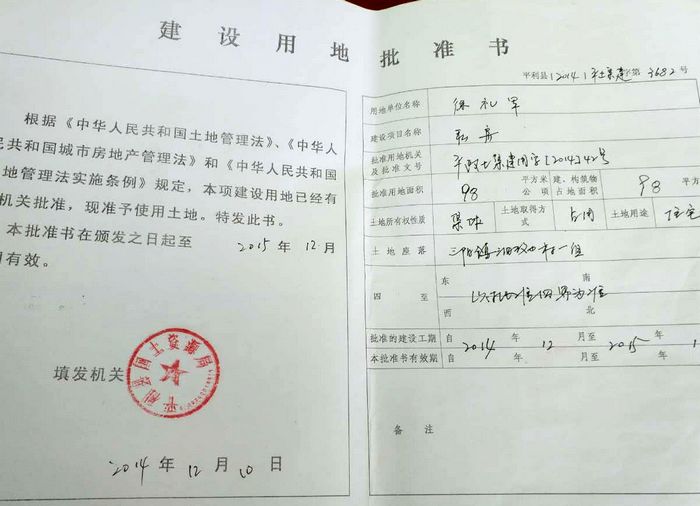 建设用地批准书
根据《中华人民共和国土地管理法》、《中华人
民共和国城市房地产管理法》和《中华人民共和国
地管理法实施条例》规定，本项建设用地已经有
机关批准，现准予使用土地。特发此书。
本批准书在颁发之日起至 2015 年 12 月
有效。
平利县国土资源局
填发机关
2014 年 12 月 10 日
平利县(2014)平土集建字第3682号
用地单位名称 徐礼军
建设项目名称
批准用地机关及批准文号 平政土集建用字[2014]42号
批准用地面积 98 平方米 公顷 建、构筑物占地面积 98 平方
土地所有权性质 集体 土地取得方式 占用 土地用途 住宅
土地座落 三阳镇 村一组
四至 东 南 西 北
以 四界为准
批准的建设工期 自 年 月至 年
本批准书有效期 自 2014 年 12 月至 2015 年 1
备注